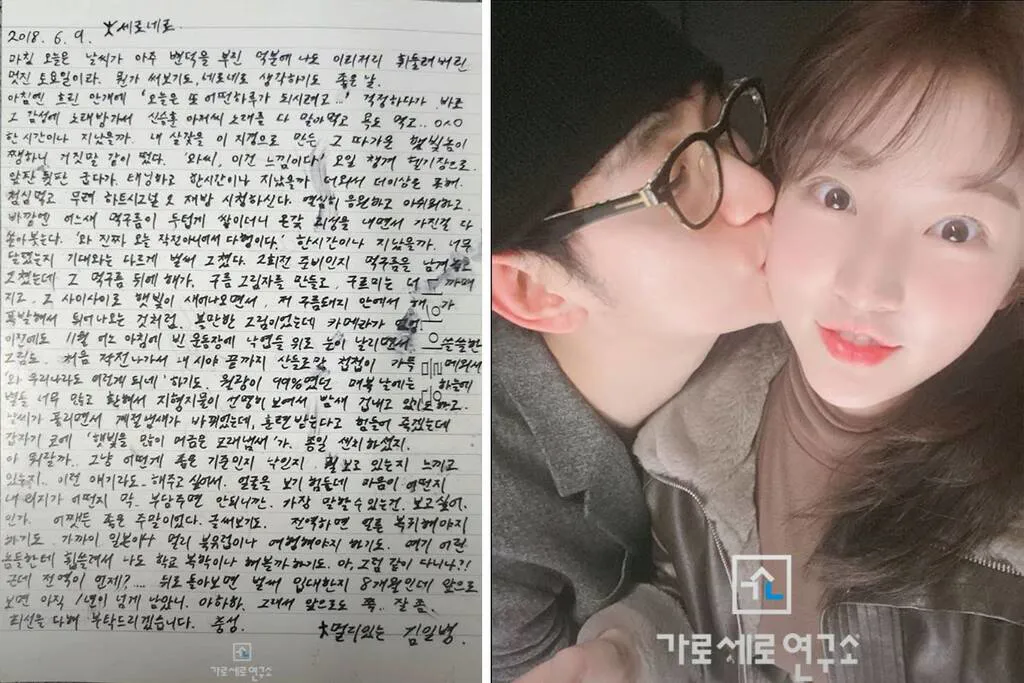 2018. 6. 9. セ세로네로
마침 오늘은 날씨가 아주 변덕을 부린 덕분에 나도 이리저리 휘둘려버린
멋진 토요일이라. 뭔가 써보기도, 세로네로 생각하기도 좋은 날.
아침엔 흐린 안개에 '오늘은 또 어떤하루가 되시려고...' 걱정하다가 바로
그 감성에 노래방가서 신승훈 아저씨 노래를 다 말아먹고 욕도 먹고.. ㅇㅅㅇ
한시간이나 지났을까. 내 살갗을 이 지경으로 만든 그 따가운 햇빛놈이
쨍하니 거짓말 같이 떴다. '와씨, 이건 느낌이다' 요일 챙겨 헬기장으로
앞판 뒷판 굽다가. 태닝하고 한시간이나 지났을까 더워서 더이상은 못해.
점심먹고 무려 하트시그널 오 재방 시청하신다. 열심히 응원하고 아쉬워하고.
바깥엔 어느새 먹구름이 두텁게 쌓이더니 온갖 괴성을 내면서 가진걸 다
쏟아붓는다. '와 진짜 오늘 작전아니어서 다행이다.' 한시간이나 지났을까. 너무
달렸는지 기대와는 다르게 벌써 그쳤다. 2회전 준비인지 먹구름을 남겨놓고
그쳤는데 그 먹구름 뒤에 해가. 구름 그림자를 만들고, 구르미는 더 까매
지고, 그 사이사이로 햇빛이 새어나오면서, 저 구름돼지 안에서 해가
폭발해서 튀어나오는 것처럼. 볼만한 그림이었는데 카메라가 없어
이전에도 11월 어느 아침에 빈 운동장에 낙엽들 위로 눈이 날리면서 쓸쓸한
그림도. 처음 작전나가서 내 시야 끝까지 산들로만 첩첩이 가득 메워서
'와 우리나라도 이렇게 되네' 하기도. 월광이 99%였던 매복 날에는 하늘에
별들 너무 많고 환해서 지형지물이 선명히 보여서 밤새 겁내고 있기도하고.
날씨가 풀리면서 계절냄새가 바뀌었는데, 훈련받는다고 힘들어 죽겠는데
갑자기 코에 '햇빛을 많이 머금은 모래냄새'가. 종일 센치하셨지.
아 뭐랄까.. 그냥 어떻게 좋은 기준인지 낙인지 뭘 보고 있는지 느끼고
있는지.. 이런 얘기라도 해주고 싶어서. 얼굴을 보기 힘들데 마음이 어떤지
내 의지가 어떤지 막 부담주면 안되니깐. 가장 말할수있는건, 보고싶어.
인가. 어쨌든 좋은 주말이었다. 글써보기도. 전역하면 얼른 복귀해야지
하기도. 가까이 일본이나 멀리 북유럽이나 여행해야지 하기도. 여기 어린
놈들한테 휩쓸려서 나도 학교 복학이나 해볼까하기도. 아, 그럼 같이 다니나?!
근데 전역이 언제?.... 뒤로 돌아보면 벌써 입대한지 8개월인데 앞으로
보면 아직 1년이 넘게 남았니. 아하하. 그래서 앞으로도 쭉. 잘 좀.
최선을 다해 부탁드리겠습니다. 충성.
멀리있는 김일병.
가로세로연구소
가로세로연구소